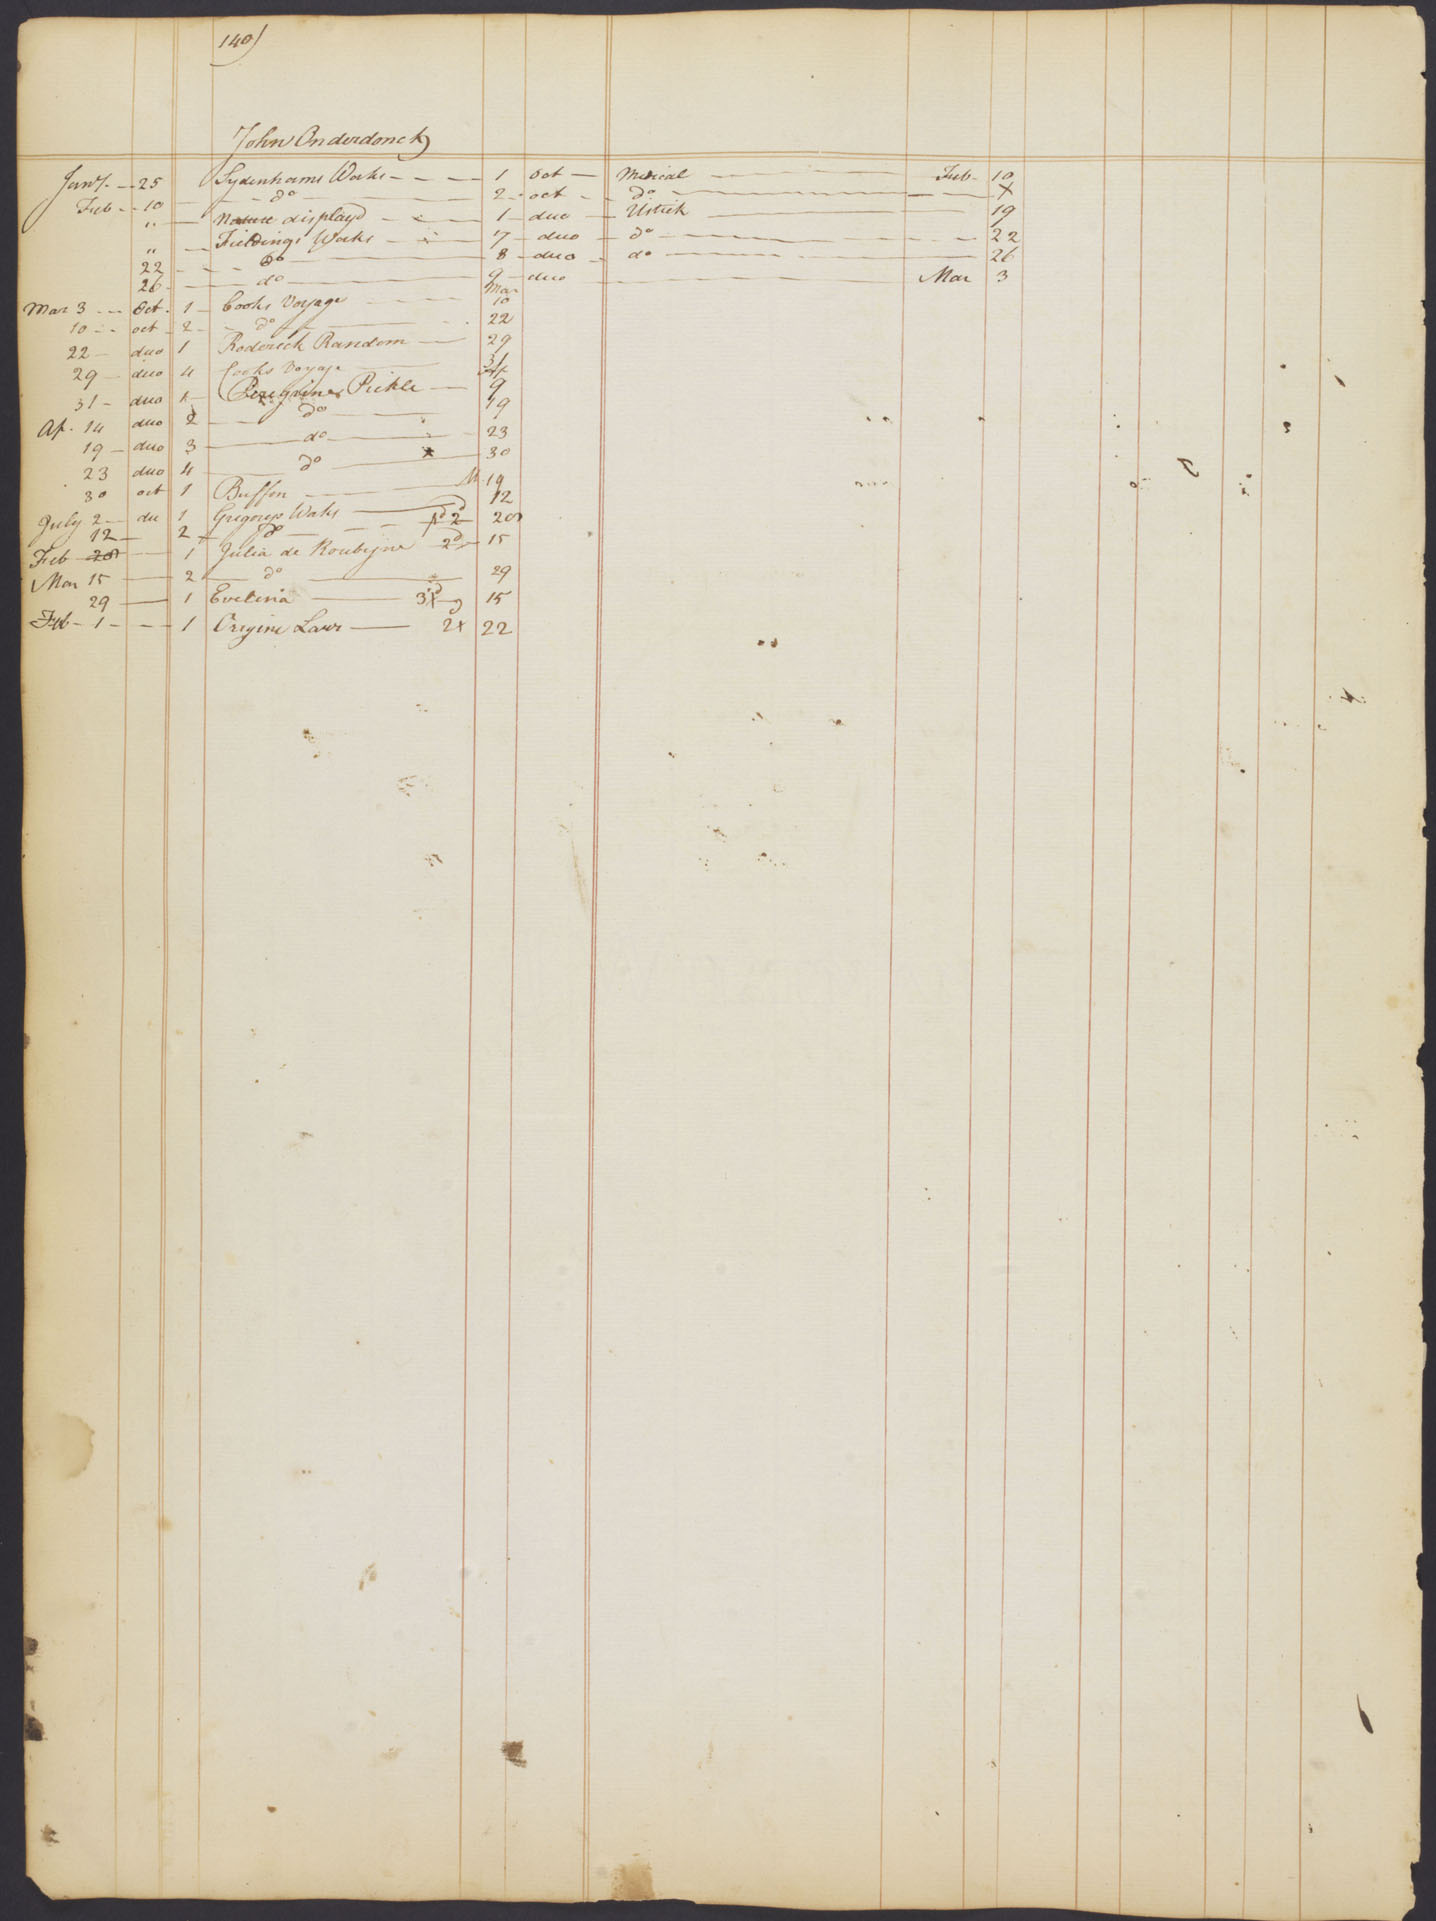 140)
John Onderdonck
Jany. 25 Sydenhams Works 1 oct Medical Feb. 10
Feb 10 do 2 oct do X
" Nature displayd 1 duo Ustick 19
" Fieldings Works 7 duo do 22
22 do 8 duo do 26
26 do 9 duo Mar 3
Mar
Mar 3 Oct. 1 Cooks Voyage 10
10 oct 2 do 22
22 duo 1 Roderick Random 29
29 duo 4 Cooks Voyage 31
31 duo 1 Peregrine Pickle 9
Ap. 14 duo 2 do 19
19 duo 3 do 23
23 duo 4 do 30
30 oct 1 Buffon 19
July 2 du 1 Gregorys Works 12
12 2 do 20
Feb 20 1 Julia de Roubigne 2d 15
Mar 15 2 do 29
29 1 Evelina 15
Feb 1 1 Origine Laws 22